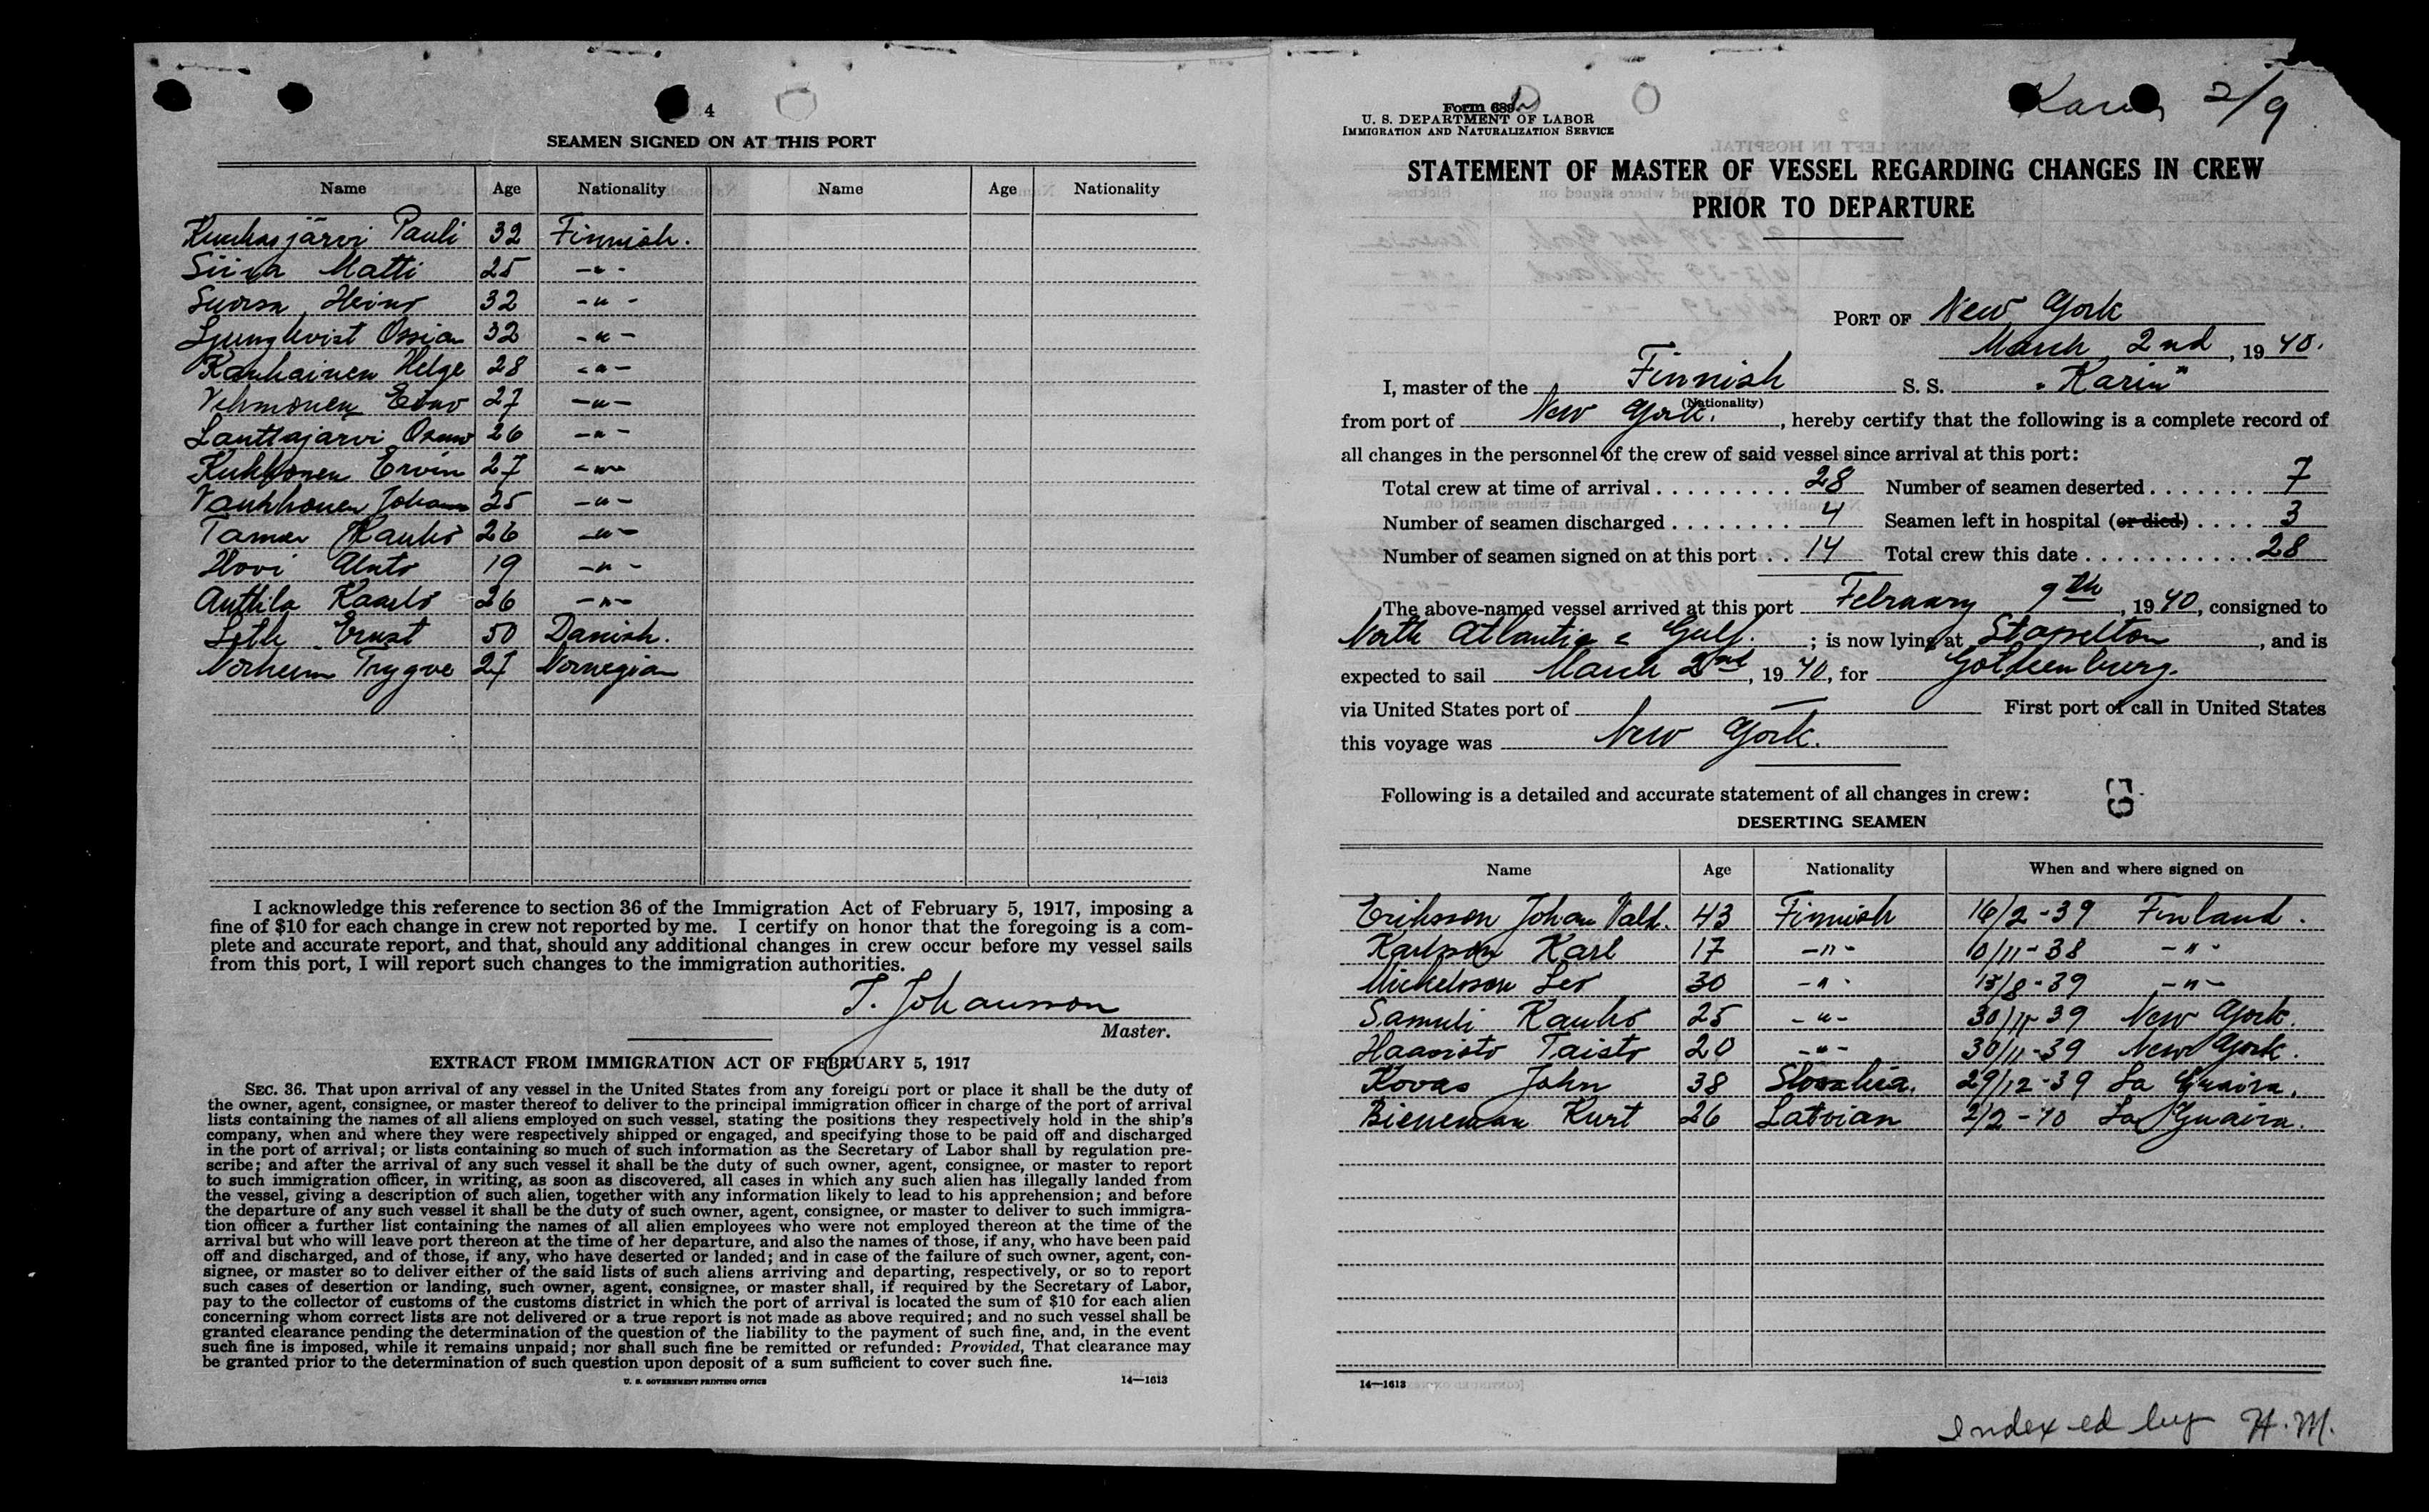 4
SEAMEN SIGNED ON AT THIS PORT
Name Age Nationality Name Age Nationality
Pauli 32 Finnish.
Siira Matti 25 -"-
Suorsa Heino 32 -"-
Ljungkvist Ossian 32 -"-
Karhainen Helge 28 -"-
Vehmonen Eino 27 -"-
Lanttajärvi 26 -"-
Kukkonen Ervin 27 -"-
Johann 25 -"-
Tamer Rauho 26 -"-
Hovi 19 -"-
Anttila Kaarlo 26 -"-
Leth Ernst 50 Danish.
Norheim Trygve 27 Norwegian
I acknowledge this reference to section 36 of the Immigration Act of February 5, 1917, imposing a
fine of $10 for each change in crew not reported by me. I certify on honor that the foregoing is a com-
plete and accurate report, and that, should any additional changes in crew occur before my vessel sails
from this port, I will report such changes to the immigration authorities.
T. Johansson
Master.
EXTRACT FROM IMMIGRATION ACT OF FEBRUARY 5, 1917
SEC. 36. That upon arrival of any vessel in the United States from any foreign port or place it shall be the duty of
the owner, agent, consignee, or master thereof to deliver to the principal immigration officer in charge of the port of arrival
lists containing the names of all aliens employed on such vessel, stating the positions they respectively hold in the ship's
company, when and where they were respectively shipped or engaged, and specifying those to be paid off and discharged
in the port of arrival; or lists containing so much of such information as the Secretary of Labor shall by regulation pre-
scribe; and after the arrival of any such vessel it shall be the duty of such owner, agent, consignee, or master to report
to such immigration officer, in writing, as soon as discovered, all cases in which any such alien has illegally landed from
the vessel, giving a description of such alien, together with any information likely to lead to his apprehension; and before
the departure of any such vessel it shall be the duty of such owner, agent, consignee, or master to deliver to such immigra-
tion officer a further list containing the names of all alien employees who were not employed thereon at the time of the
arrival but who will leave port thereon at the time of her departure, and also the names of those, if any, who have been paid
off and discharged, and of those, if any, who have deserted or landed; and in case of the failure of such owner, agent, con-
signee, or master so to deliver either of the said lists of such aliens arriving and departing, respectively, or so to report
such cases of desertion or landing, such owner, agent, consignee, or master shall, if required by the Secretary of Labor,
pay to the collector of customs of the customs district in which the port of arrival is located the sum of $10 for each alien
concerning whom correct lists are not delivered or a true report is not made as above required; and no such vessel shall be
granted clearance pending the determination of the question of the liability to the payment of such fine, and, in the event
such fine is imposed, while it remains unpaid; nor shall such fine be remitted or refunded: Provided, That clearance may
be granted prior to the determination of such question upon deposit of a sum sufficient to cover such fine.
U. S. GOVERNMENT PRINTING OFFICE 14—1613
Karin 2/9
Form 689
U. S. DEPARTMENT OF LABOR
IMMIGRATION AND NATURALIZATION SERVICE
STATEMENT OF MASTER OF VESSEL REGARDING CHANGES IN CREW
PRIOR TO DEPARTURE
PORT OF New York
March 2nd, 1940.
I, master of the Finnish S. S. "Karin"
(Nationality)
from port of New York., hereby certify that the following is a complete record of
all changes in the personnel of the crew of said vessel since arrival at this port:
Total crew at time of arrival 28 Number of seamen deserted 7
Number of seamen discharged 4 Seamen left in hospital (or died) 3
Number of seamen signed on at this port 14 Total crew this date 28
The above-named vessel arrived at this port February 9th, 1940, consigned to
North Atlantic & Gulf.; is now lying at Stapelton, and is
expected to sail March 2nd, 1940, for Gothenburg.
via United States port of — First port of call in United States
this voyage was New York.
Following is a detailed and accurate statement of all changes in crew:
DESERTING SEAMEN
Name Age Nationality When and where signed on
Eriksson Johan Vald. 43 Finnish 16/2-39 Finland.
Karlsson Karl 17 -"- 10/11-38 -"-
Michelsson Leo 30 -"- 15/8-39 -"-
Samuli Rauho 25 -"- 30/11-39 New York.
Haavisto Taisto 20 -"- 30/11-39 New York.
Kovas John 38 Slovakia. 29/12-39 La Guaira.
Bieneman Kurt 26 Latvian 2/2-40 La Guaira.
14—1613
Indexed by H.M.